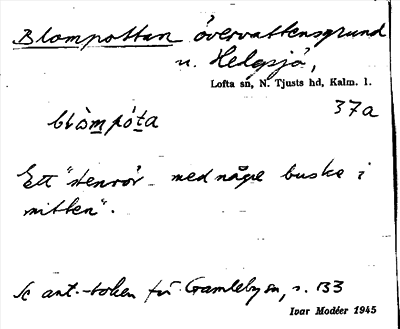 Blompottan övervattensgrund
n. Helgsjö,
Lofta sn, N. Tjusts hd, Kalm. l.
37a
blòmpót̲a
Ett "stenrör med någe buske i
mitten".
Se ant.-boken för Gamleby sn, s. 133
Ivar Modéer 1945